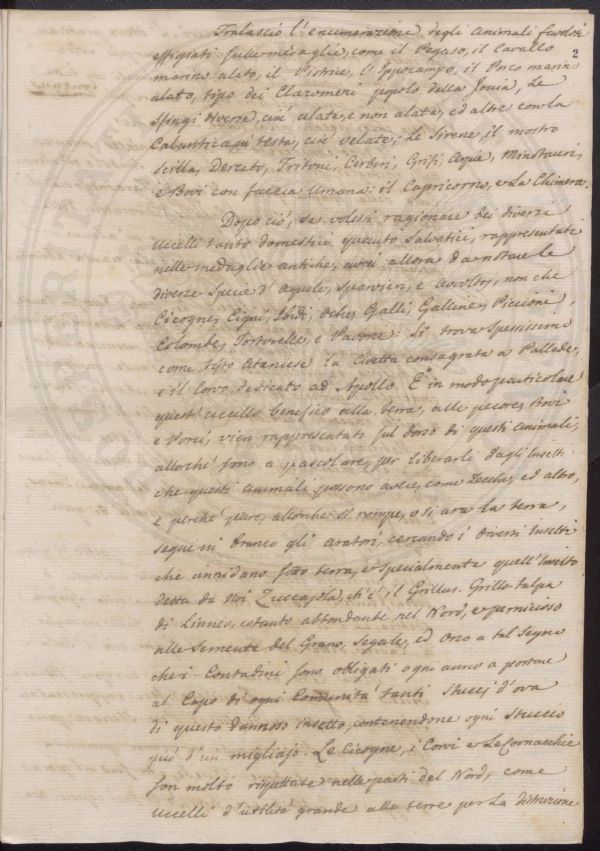 2
Tralascio l'enumerazione degli Animali favolosi
effigiati sulle medaglie, come il Pegaso, il Cavallo
marino alato, il Pistrice, l'Ippocampo, il Porco marin
alato, tipo dei Clazomeni popolo della Jonia, Le
Sfingi diverse, cioè alate, e non alate, ed altre con la
Calantica in testa, cioè velate; Le Sirene, il mostro
Scilla, Derceto, Tritoni, Cerberi, Grifi, Minotauri,
e Bovi con faccia Umana: il Capricorno, e La Chimera.
Dopo ciò, se volessi ragionare dei diversi
Uccelli tanto domestici quanto Salvatici, rappresentati
nelle medaglie antiche, avrei allora da notare le
diverse Specie d'Aquile, Sparvieri, e Avoltoj, non che
Cicogne, Cigni, Ibidi, Oche, Galli, Galline, Piccioni,
Colombe, Tortorelle, e Pavoni: Si trova Spessissimo
come tipo Ateniese la Civetta consagrata a Pallade,
e il Corvo dedicato ad Apollo. E' in modo particolare
quest'uccello benefico alla terra, alle pecore, Bovi
e Porci, vien rappresentato sul dorso di questi animali,
allorché sono a pascolare, per liberarli dagli Insetti
che questi animali possono avere, come Zecche, ed altro,
e perché pure, allorche si rompe, o si ara la terra,
segue in branco gli aratori, cercando i diversi Insetti
che annidano sotto terra, e specialmente quell'Insetto
detta da Noi Zuccajola, ch'è il Grillus Grillo-talpa
di Linneo, cotanto abbondante nel Nord, e pernicioso
alle Semente del Grano, Segale, ed Orzo a tal Segno
che i Contadini sono obbligati ogni anno a portare
al Capo di ogni Comunità tanti Stucci d'ova
di questo dannoso insetto, contenendone ogni Stuccio
più d'un migliajo. Le Cicogne, i Corvi e Le Cornacchie
son molto rispettate nelle parti del Nord, come
Uccelli d'utilità grande alle terre per La distruzione